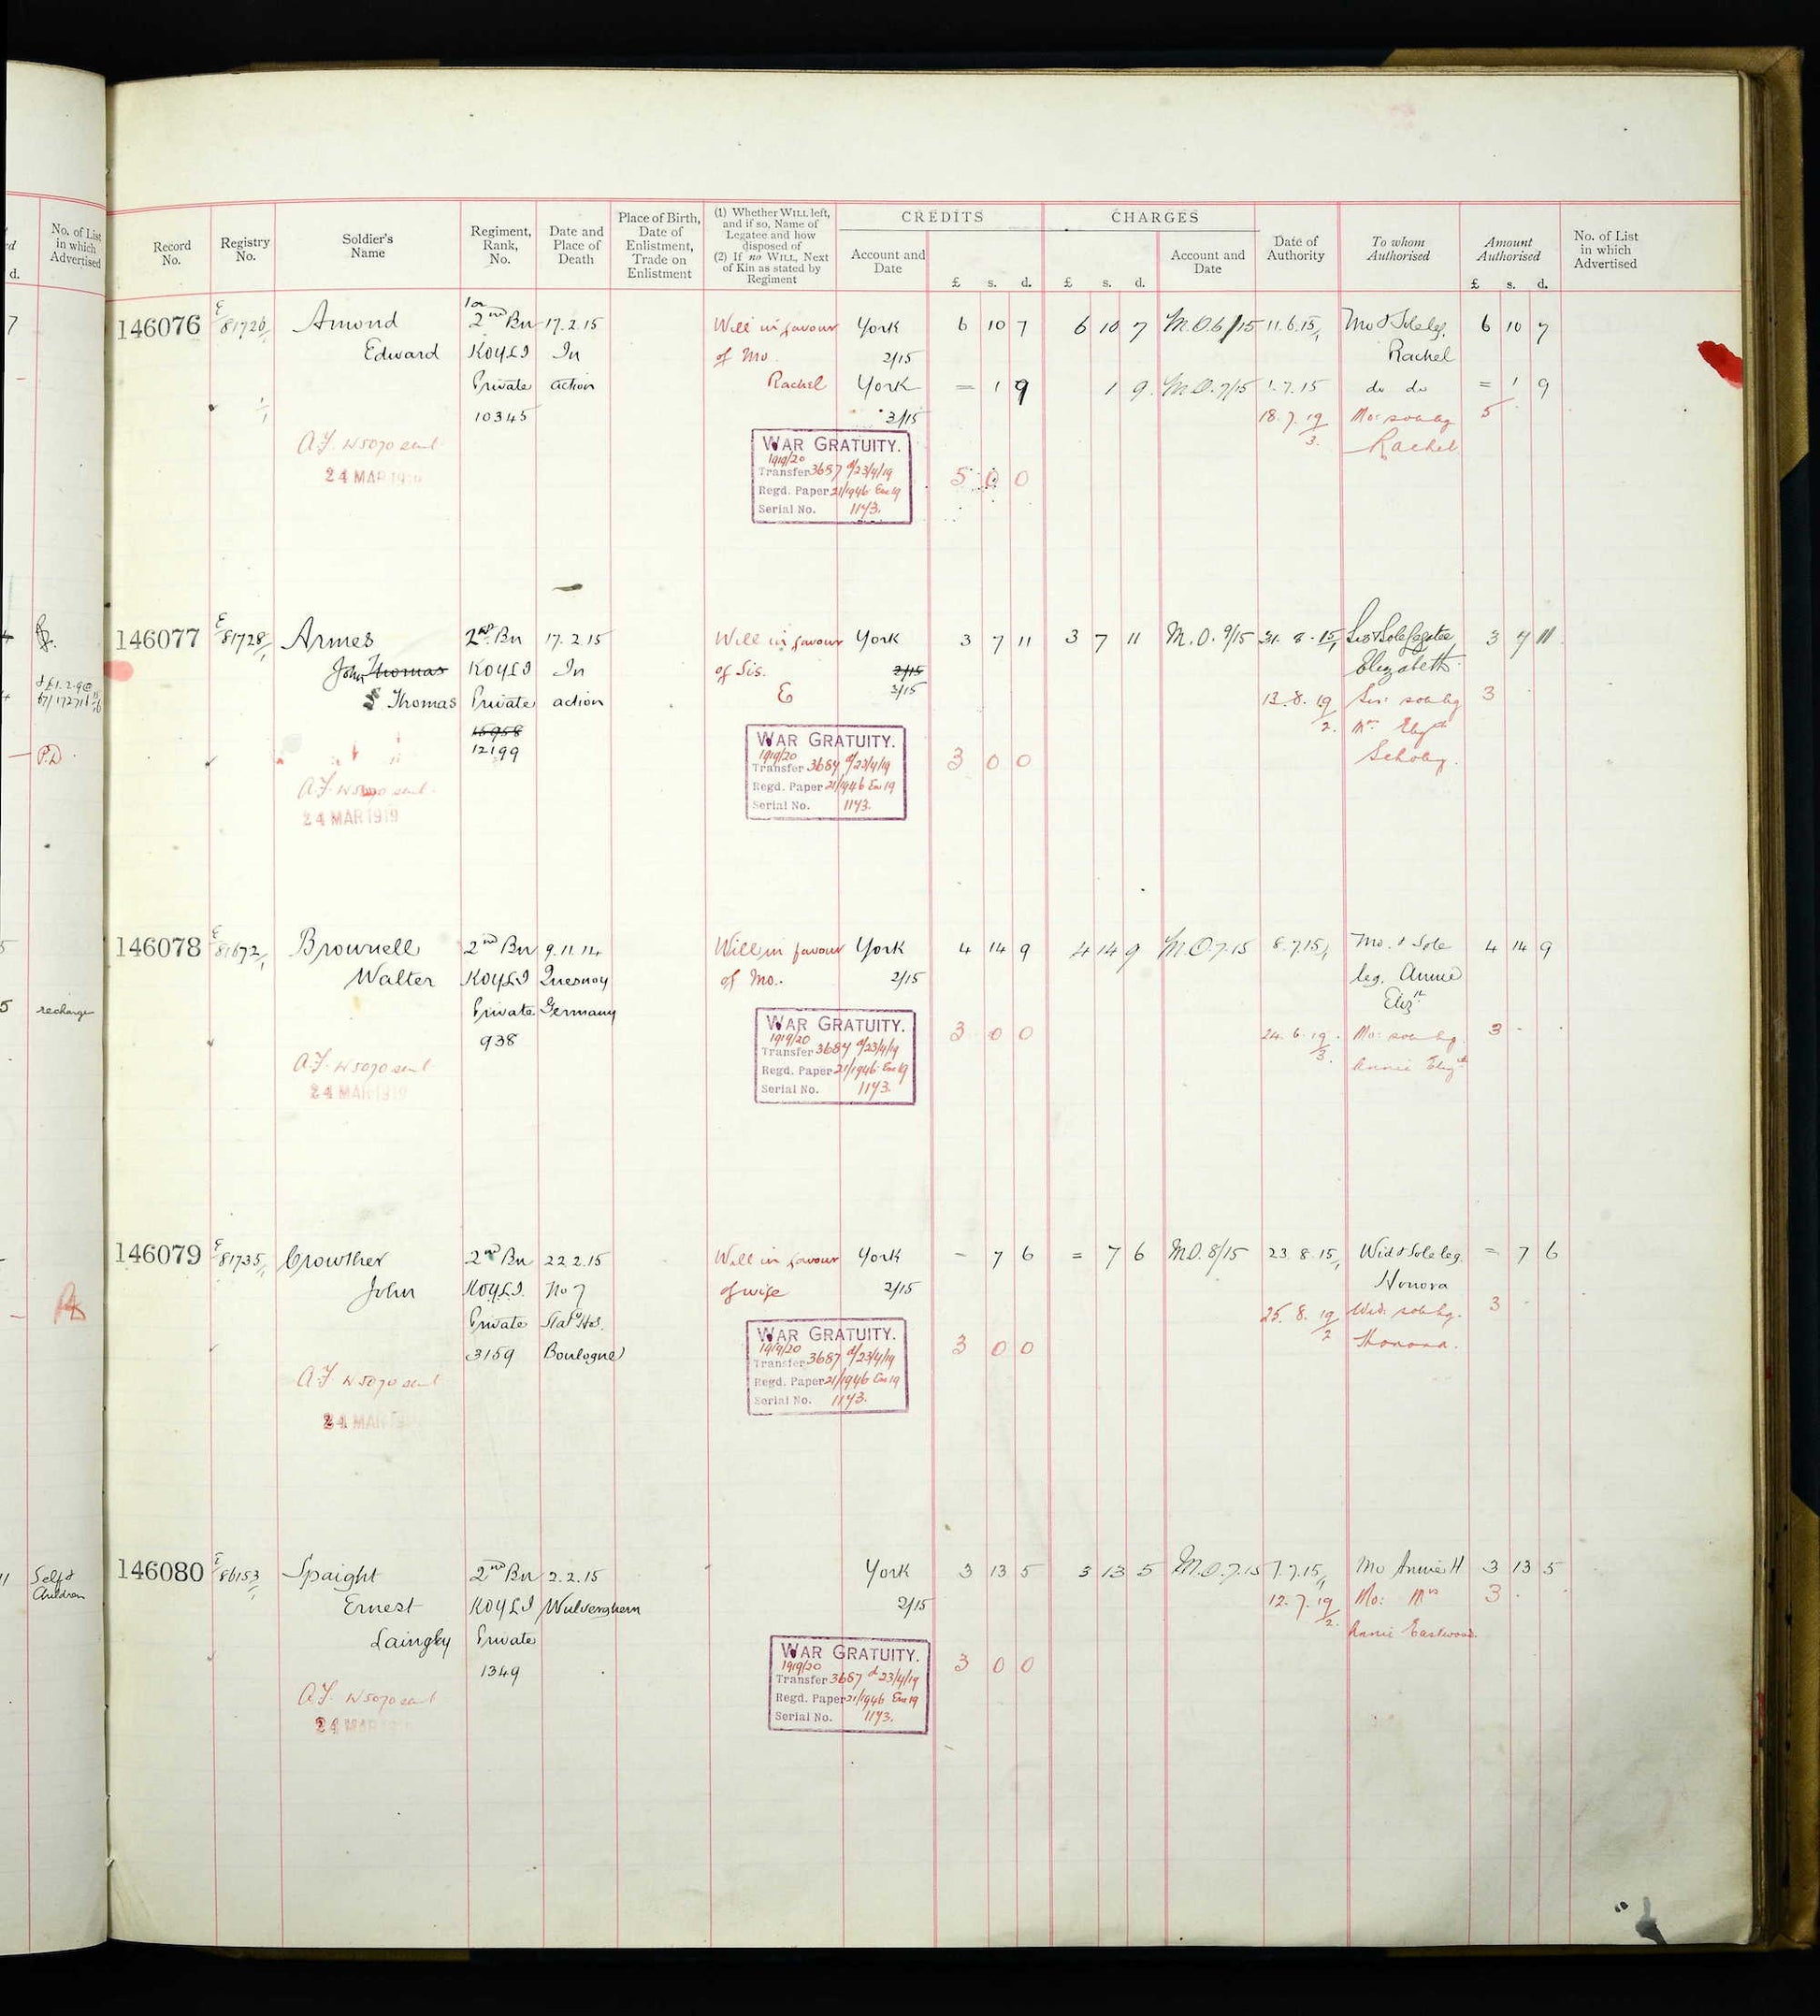 No. of List
in which
Advertised
d.
Record
No.
Registry
No.
Soldier's
Name
Regiment,
Rank,
No.
Date and
Place of
Death
Place of Birth,
Date of
Enlistment,
Trade on
Enlistment
(1) Whether WILL left,
and if so, Name of
Legatee and how
disposed of
(2) If no WILL, Next
of Kin as stated by
Regiment
CREDITS
Account and
Date
£ s. d.
CHARGES
£ s. d.
Account and
Date
Date of
Authority
To whom
Authorised
Amount
Authorised
£ s. d.
No. of List
in which
Advertised
7
146076 E/81726/1 Amond 2nd Bn 17.2.15 Will in favour York 6 10 7 6 10 7 M.O.6/15 11.6.15 Mo & Sole leg. 6 10 7
Edward KOYLI In of Mo. 2/15 Rachel
Private action Rachel York = 1 9 1 9 M.O.7/15 1.7.15 do do = 1 9
10345 3/15 18.7.19/3. Mo: sole leg 5
A.F. W5070 sent Rachel
24 MAR 1919
WAR GRATUITY.
1919/20
Transfer 3687 d/23/4/19 5 0 0
Regd. Paper 21/1946 Ens 19
Serial No. 1173.
146077 E/81728/1 Armes 2nd Bn 17.2.15 Will in favour York 3 7 11 3 7 11 M.O. 9/15 31.8.15 Sis & Sole Legatee 3 7 11
John Thomas KOYLI In of Sis. 2/15 Elizabeth
Thomas Private action E 3/15 13.8.19/2. Sis: sole leg 3
15958 Mrs Elizth
12199 Scholey.
P.D
A.F. W5070 sent
24 MAR 1919
WAR GRATUITY.
1919/20
Transfer 3687 d/23/4/19 3 0 0
Regd. Paper 21/1946 Ens 19
Serial No. 1173.
146078 E/81672/1 Brownell 2nd Bn 9.11.14 Will in favour York 4 14 9 4 14 9 M.O.7.15 8.7.15 Mo. & Sole 4 14 9
Walter KOYLI Quesnoy of Mo. 2/15 leg. Annie
recharge Private Germany Elizth
938 24.6.19/3. Mo: sole leg. 3
A.F. W5070 sent Annie Elizth
24 MAR 1919
WAR GRATUITY.
1919/20
Transfer 3687 d/23/4/19 3 0 0
Regd. Paper 21/1946 Ens 19
Serial No. 1173.
146079 E/81735/1 Crowther 2nd Bn 22.2.15 Will in favour York – 7 6 = 7 6 M.O. 8/15 23.8.15 Wid & Sole leg = 7 6
John KOYLI. No 7 of wife 2/15 Honora
Private Staty Hos. 25.8.19/2 Wid: sole leg. 3
3159 Boulogne Honora.
A.F. W5070 sent
24 MAR
WAR GRATUITY.
1919/20
Transfer 3687 d/23/4/19 3 0 0
Regd. Paper 21/1946 Ens 19
Serial No. 1173.
Self &
Children
146080 E/86153/1 Spaight 2nd Bn 2.2.15 York 3 13 5 3 13 5 M.O.7.15 7.7.15 Mo Annie H 3 13 5
Ernest KOYLI Wulverghem 2/15 12.7.19/2. Mo: Mrs 3
Laingley Private Annie Eastwood.
1349
A.F. W5070 sent
24 MAR
WAR GRATUITY.
1919/20
Transfer 3687 d 23/4/19 3 0 0
Regd. Paper 21/1946 Ens 19
Serial No. 1173.